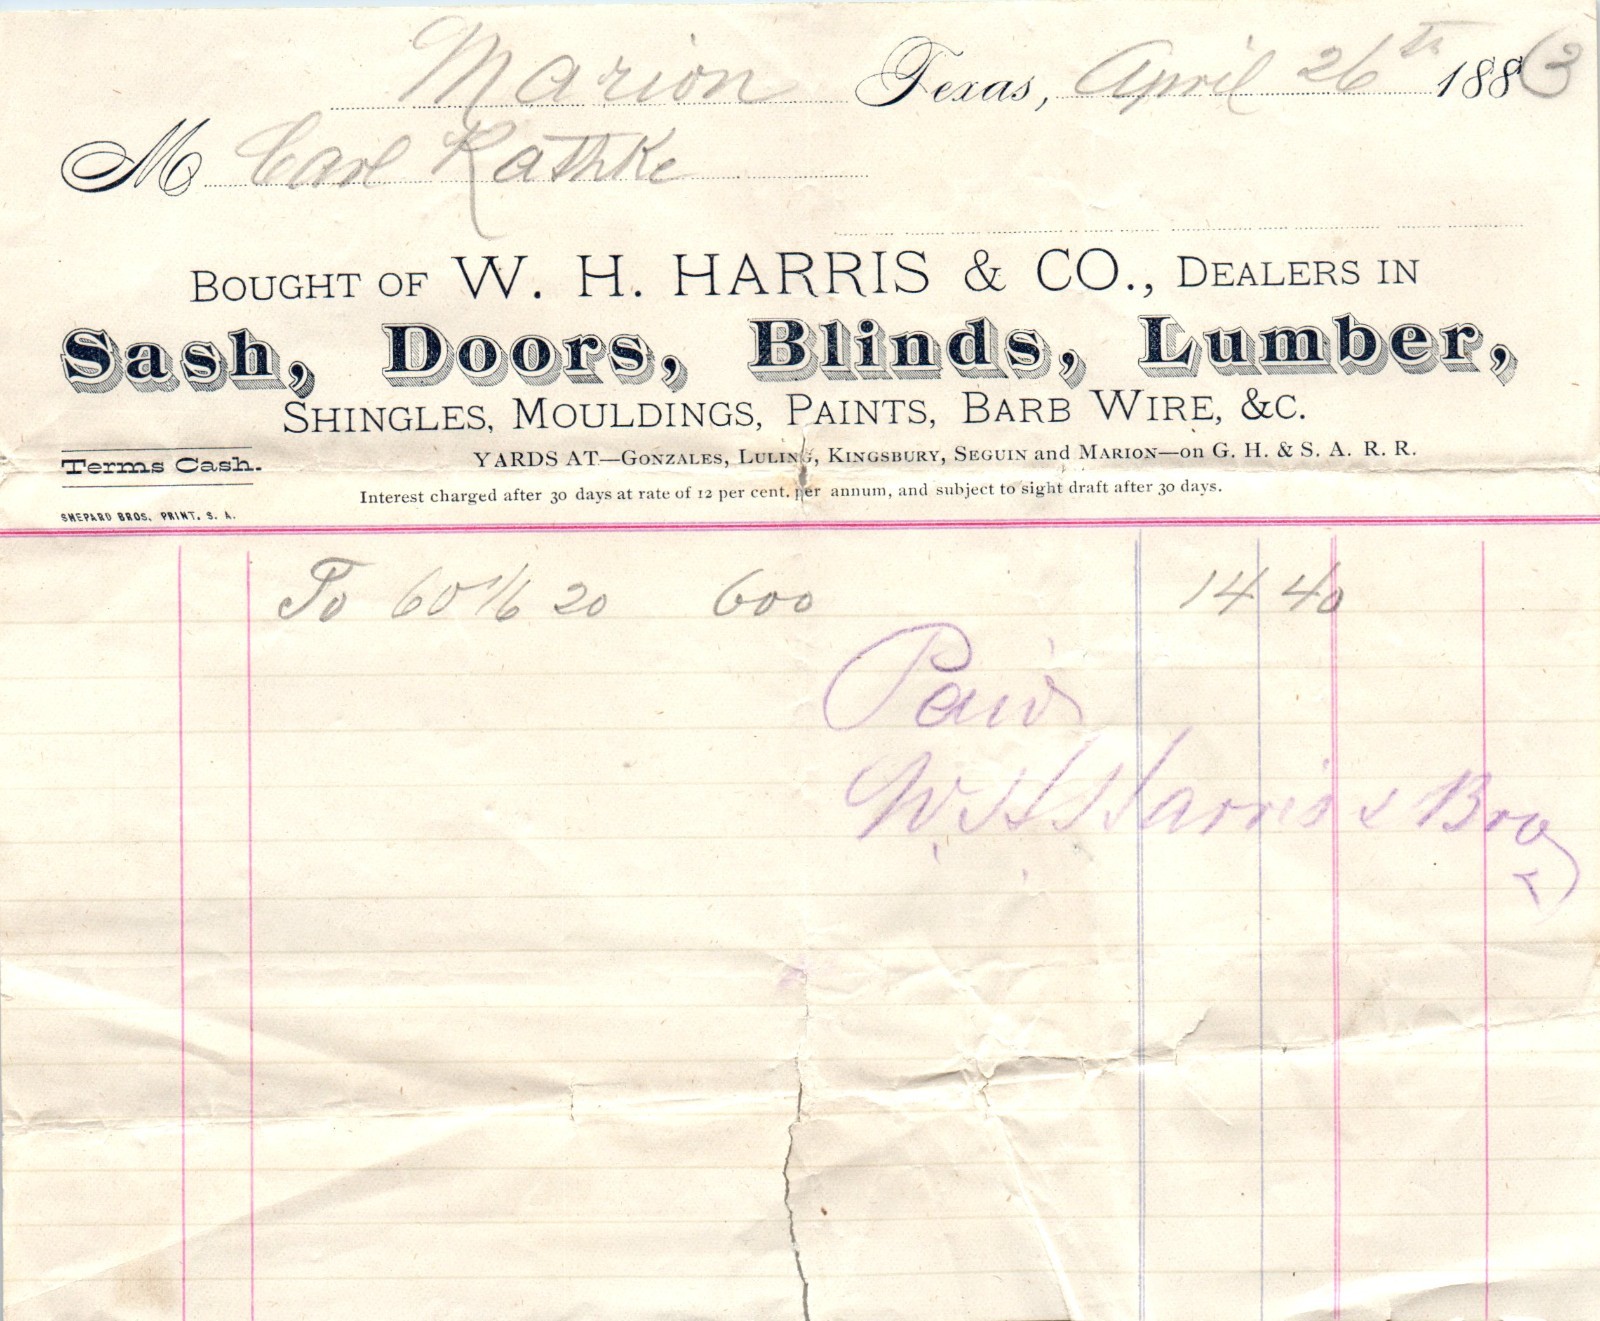 Marion Texas, April 26th 1883
M Carl Rathke
BOUGHT OF W. H. HARRIS & CO., DEALERS IN
Sash, Doors, Blinds, Lumber,
SHINGLES, MOULDINGS, PAINTS, BARB WIRE, &C.
Terms Cash.
YARDS AT—GONZALES, LULING, KINGSBURY, SEGUIN and MARION—on G. H. & S. A. R. R.
Interest charged after 30 days at rate of 12 per cent. per annum, and subject to sight draft after 30 days.
SHEPARD BROS. PRINT, S. A.
To 60 1/6 20 600 14 40
Paid
W H Harris & Bro